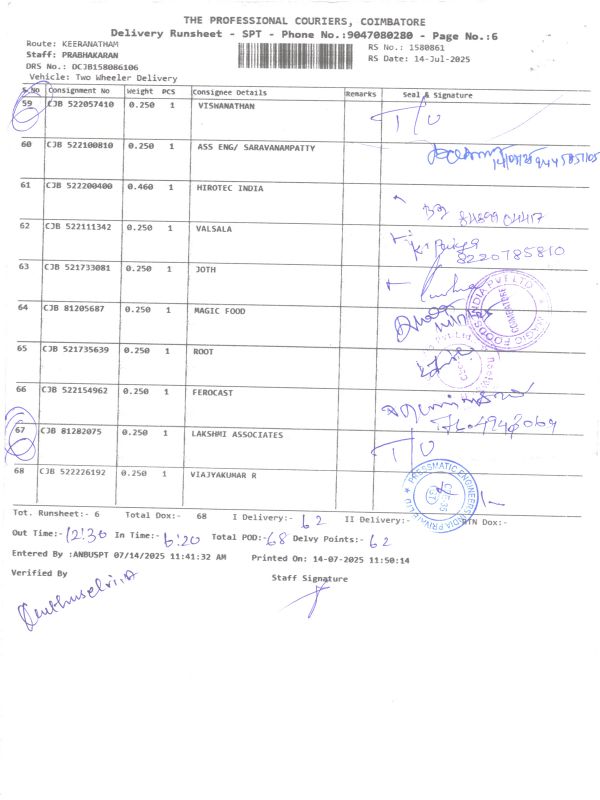 THE PROFESSIONAL COURIERS, COIMBATORE
Delivery Runsheet - SPT - Phone No.:9047080280 - Page No.:6
Route: KEERANATHAM
RS No.: 1580861
Staff: PRABHAKARAN
RS Date: 14-Jul-2025
DRS No.: DCJB158086106
Vehicle: Two Wheeler Delivery
S.No Consignment No Weight PCS Consignee Details Remarks Seal & Signature
59 CJB 522057410 0.250 1 VISWANATHAN T/U
60 CJB 522100810 0.250 1 ASS ENG/ SARAVANAMPATTY
61 CJB 522200400 0.460 1 HIROTEC INDIA
62 CJB 522111342 0.250 1 VALSALA
8220785810
63 CJB 521733081 0.250 1 JOTH
64 CJB 81205687 0.250 1 MAGIC FOOD
65 CJB 521735639 0.250 1 ROOT
66 CJB 522154962 0.250 1 FEROCAST
67 CJB 81282075 0.250 1 LAKSHMI ASSOCIATES T/U
68 CJB 522226192 0.250 1 VIAJYAKUMAR R
PRESSMATIC ENGINEERS INDIA PRIVATE LTD
Tot. Runsheet:- 6 Total Dox:- 68 I Delivery:- 62 II Delivery:- RTN Dox:-
Out Time:- 12:30 In Time:- 6:20 Total POD:- 68 Delvy Points:- 62
Entered By :ANBUSPT 07/14/2025 11:41:32 AM Printed On: 14-07-2025 11:50:14
Verified By
Staff Signature